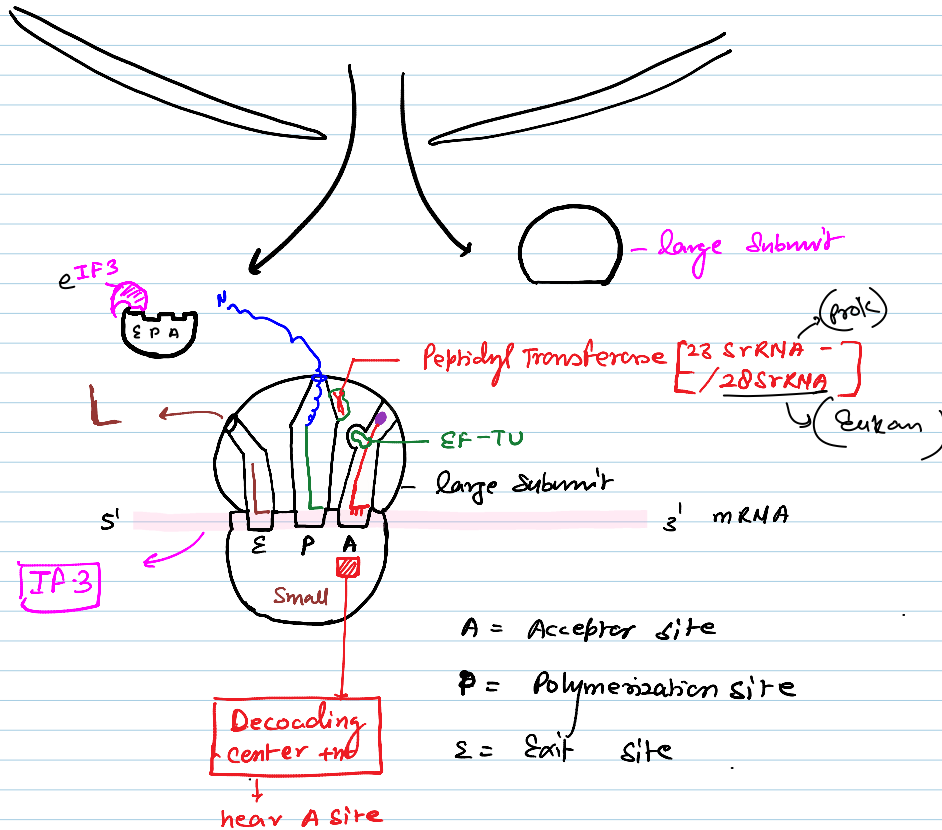 large Subunit
eIF3
E P A
N
(Prok)
Peptidyl Transferase [23 SrRNA -
/ 28SrRNA]
(Eukar)
EF-TU
large Subunit
5' 3' mRNA
E P A
IF-3
Small
A = Acceptor site
P = Polymerization site
E = Exit site
Decoading
center
near A site